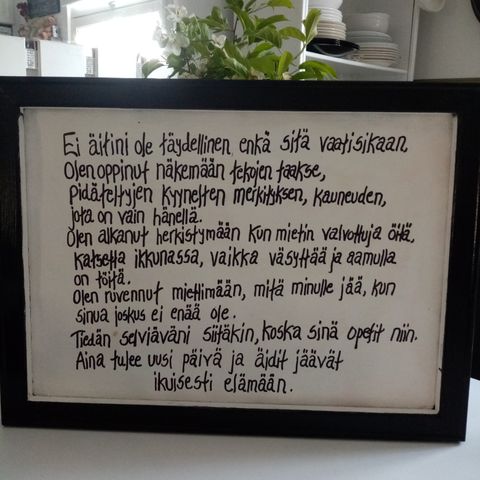 Ei äitini ole täydellinen, enkä sitä vaatisikaan.
Olen oppinut näkemään tekojen taakse,
pidäteltyjen kyynelten merkityksen, kauneuden,
jota on vain hänellä.
Olen alkanut herkistymään kun mietin valvottuja öitä,
katsetta ikkunassa, vaikka väsyttää ja aamulla
on töitä.
Olen ruvennut miettimään, mitä minulle jää, kun
sinua joskus ei enää ole.
Tiedän selviäväni siitäkin, koska sinä opetit niin.
Aina tulee uusi päivä ja äidit jäävät
ikuisesti elämään.